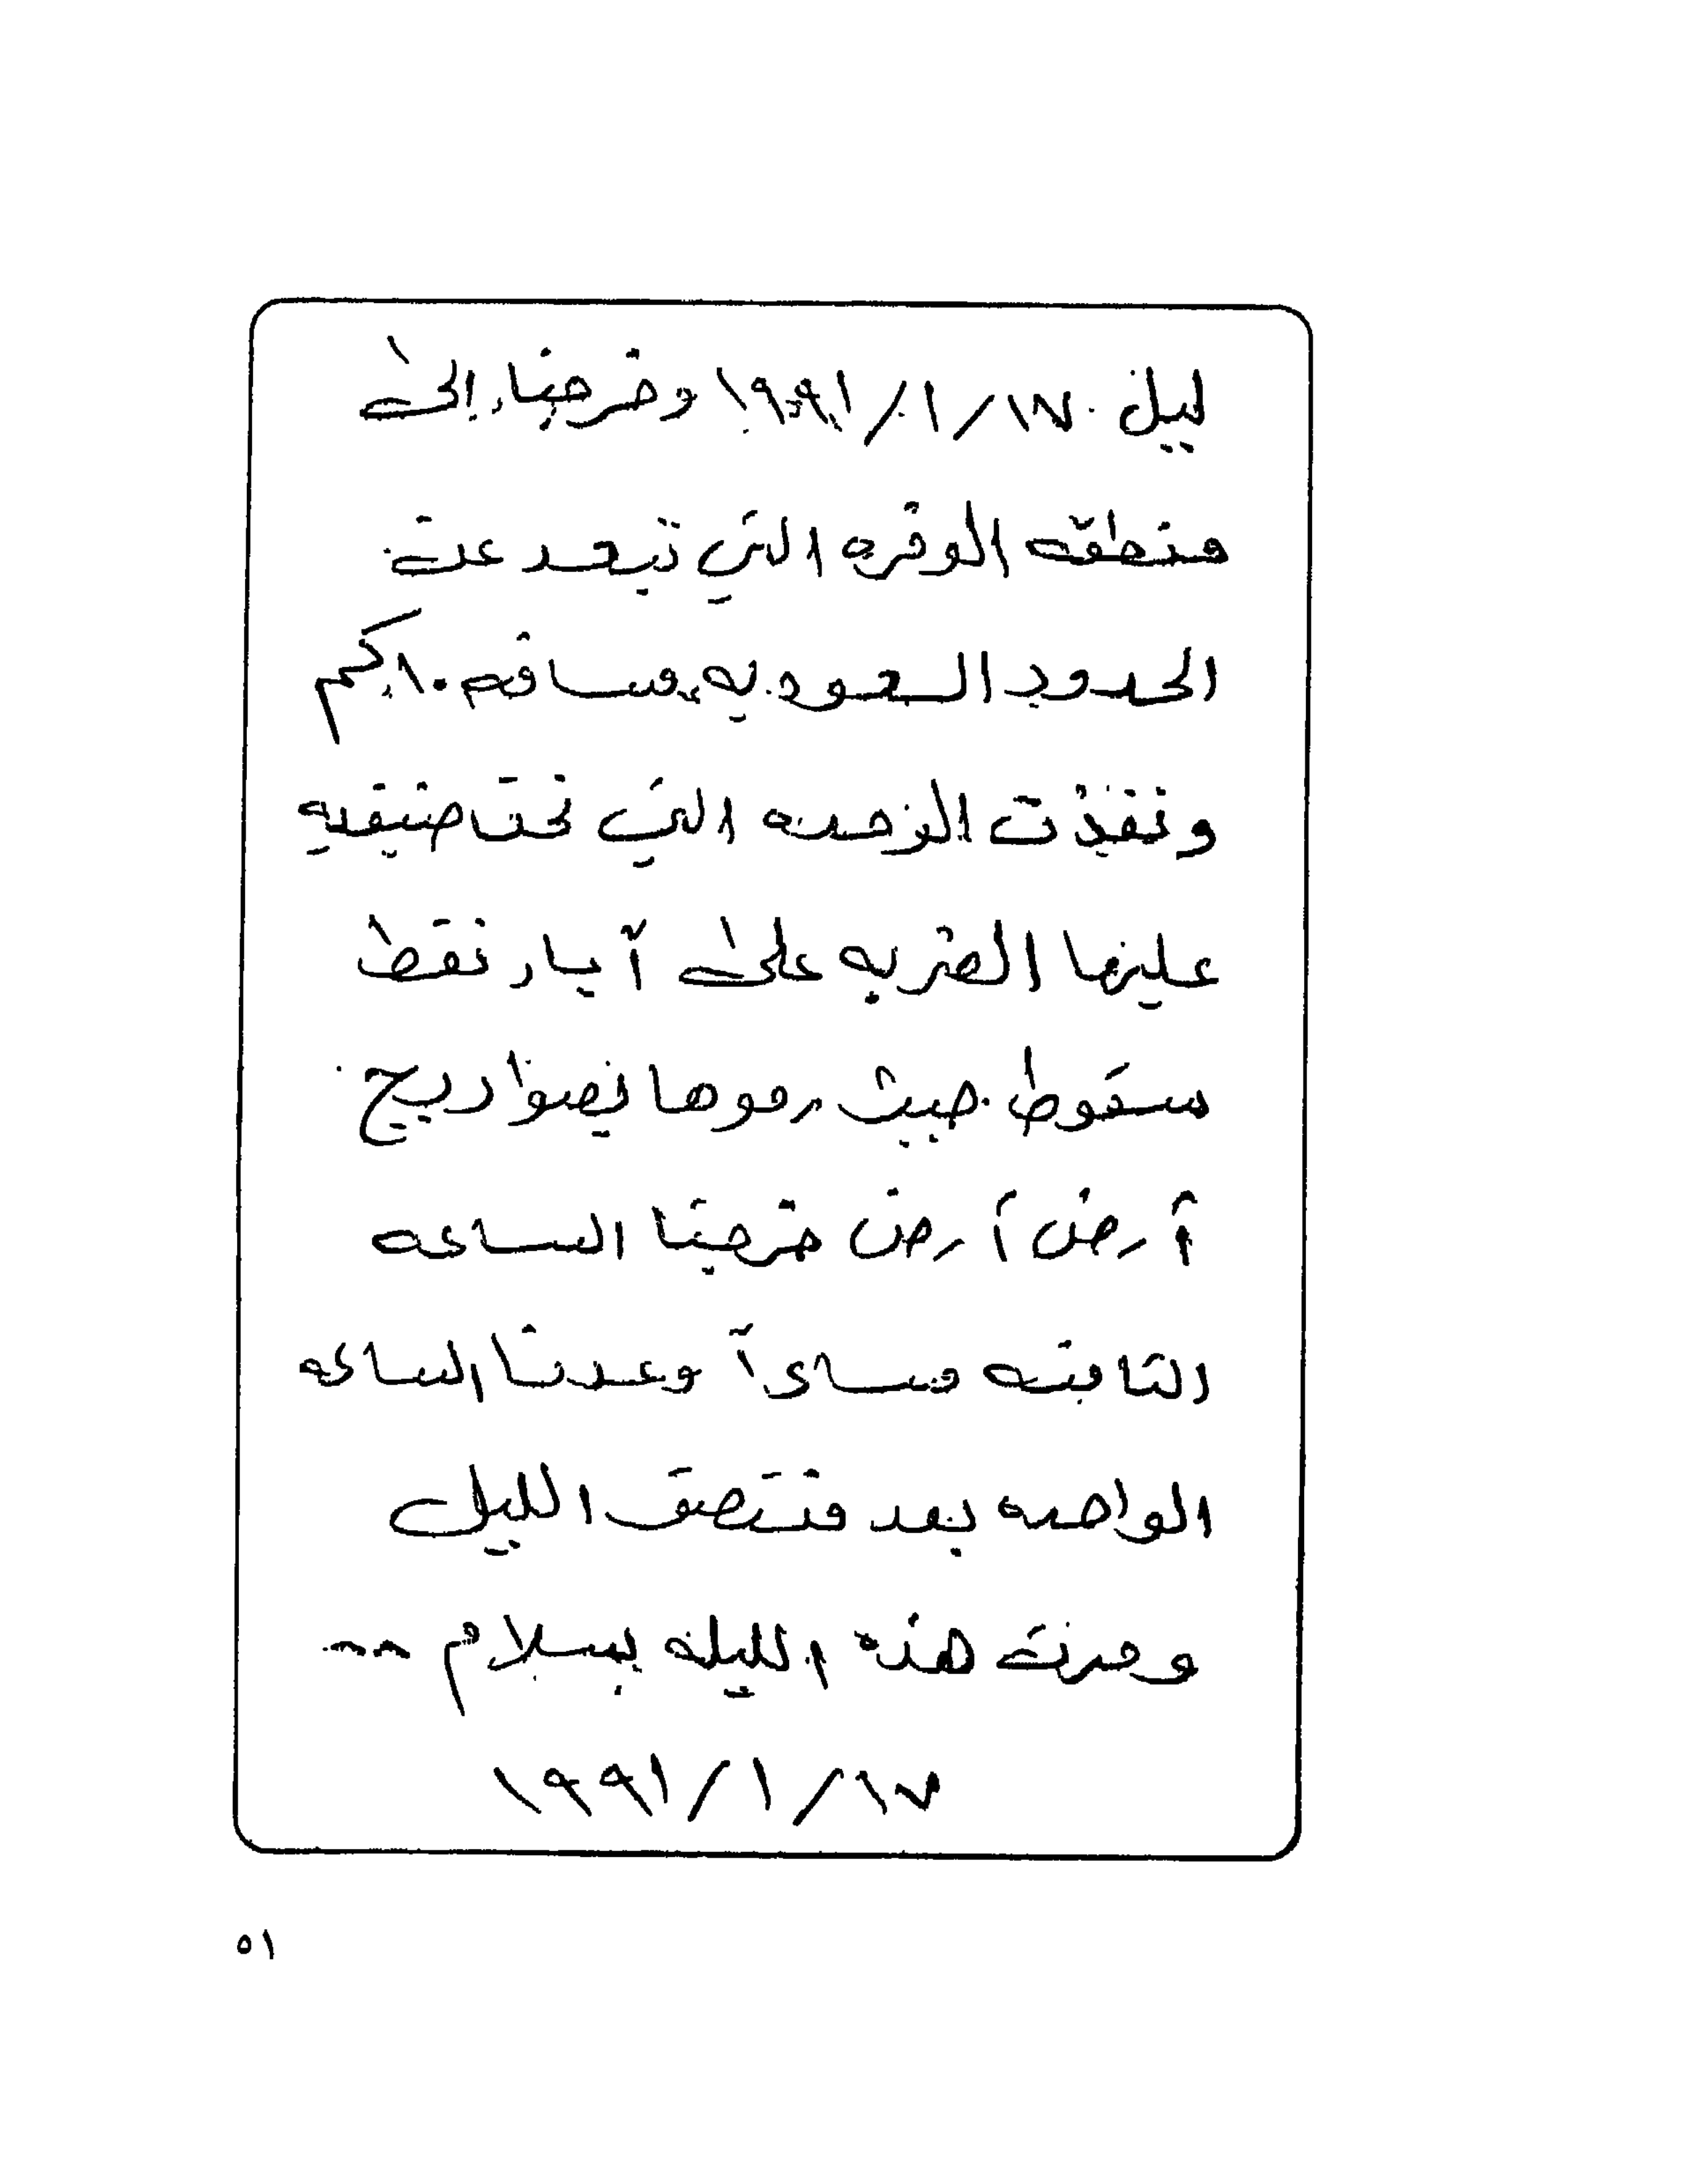 ليل ١٧/١/١٩٩١ وخرجنا إلى
منطقه الوفره التي تبعد عن
الحدود السعوديه مسافه ١٠ كم
ونفذت الوحده التي نحن ضيفيه
عليها الضربه على آبار نفط
سقوط حيث رموها بصواريخ
أرض أرض خرجنا الساعه
الثامنه مساءآ وعدنا الساعه
الواحده بعد منتصف الليل
ومرت هذه الليله بسلام --
١٩٩١/١/١٧
٥١